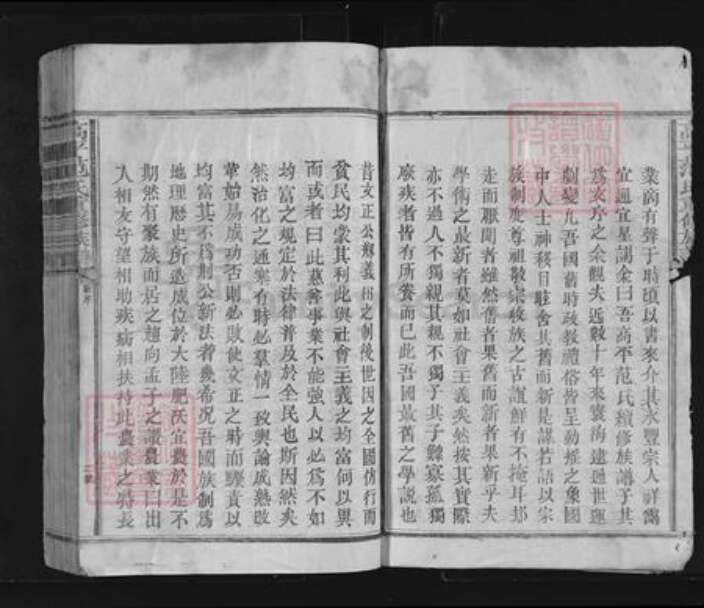 業商有聲于時頃以書來介其永豐宗人祥
宜通宜星謁余曰吾高平范氏續修族譜子其
為文序之余觀夫近數十年來寰海遠通世運
劇變凡吾國舊時政教禮俗皆呈動搖之象國
中人士神移目眩舍其舊而新是謀若語以宗
族制度尊祖敬宗收族之古誼鮮有不掩耳卻
走而駭聞者雖然舊者果舊而新者果新乎夫
學術之最新者莫如社會主義矣然按其實際
亦不過人不獨親其親不獨子其子鰥寡孤獨
廢疾者皆有所養而已此吾國最舊之學說也
昔文正公有義田之制後世因之全國仿行而
貧民均蒙其利此與社會主義之均富何以異
而或者曰此慈善事業不能強人以必為不如
均富之規定於法律普及於全民也斯因然矣
然治化之通塞有時必羣情一致輿論成熟改
革始易成功否則必敗使文正之時而驟責以
均富其不為荊公新法者幾希况吾國族制為
地理歷史所造成位於大陸肥沃宜農於是不
期然有聚族而居之趨向孟子之讚農業曰出
入相友守望相助疾病相扶持此農業之特長
范氏 修族